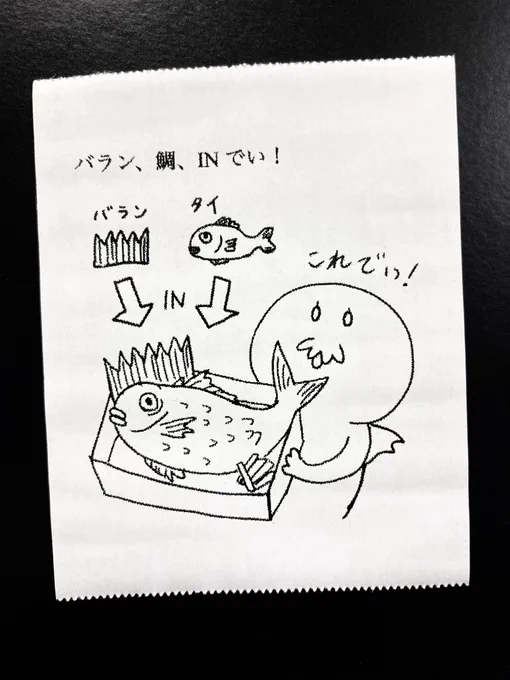 バラン、鯛、INでい！
バラン
タイ
IN
これでいっ!